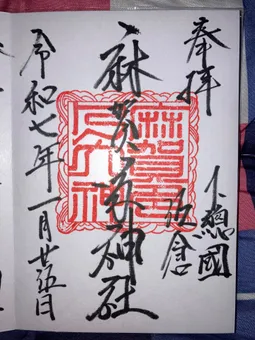 奉拝
下總國
佐倉
麻賀多神社
令和七年一月廿五日